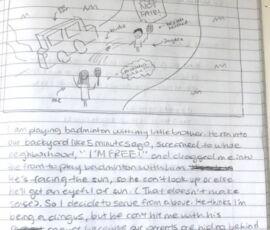 NOT FAIR!
me
I am playing badminton with my little brother. He ran into
our backyard like 5 minutes ago, screamed to whole
neighborhood, "I'M FREE!" and dragged me into
the front to play badminton with him
He's facing the sun, so he can't look up or else
he'll get an eyeful of sun. (That doesn't make
sense). So I decide to serve from above. He thinks I'm
being a dingus, but he can't hit me with his
because our parents are hiding behind